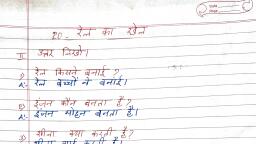 20- रेल का खेल
II उत्तर लिखो।
1) रेल किसने बनाई?
A:- रेल बच्चों ने बनाई।
2) इंजन कौन बनता है?
A:- इंजन मोहन बनता है।
3) सीता क्या करती है?